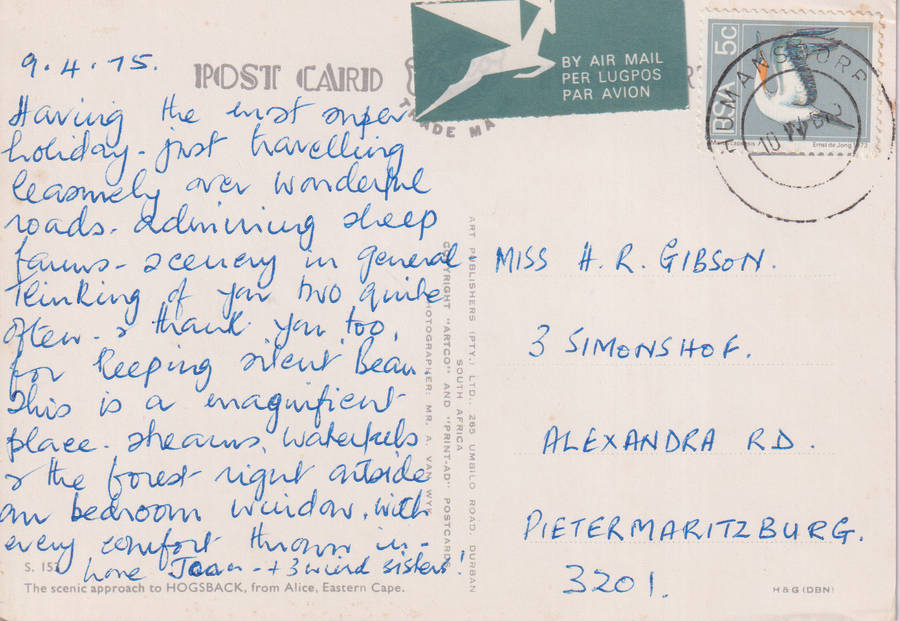 9.4.75.
POST CARD
TRADE MA
BY AIR MAIL
PER LUGPOS
PAR AVION
5c
RSA
Ernst de Jong 1973
MANSDORP
10 IV
Having the most super
holiday - just travelling
leasurely over wonderful
roads. admiring sheep
farms - scenery in general
Thinking of you two quite
often & thank you too,
for keeping silent Beau.
This is a magnificent
place. streams, waterfalls
& the forest right outside
our bedroom window. with
every comfort thrown in -
love Joan - + 3 weird sisters!
S. 15
The scenic approach to HOGSBACK, from Alice, Eastern Cape.
PHOTOGRAPHER: MR. A. VAN WYK
COPYRIGHT "ARTCO" AND "PRINT-AD" POSTCARDS
SOUTH AFRICA
ART PUBLISHERS (PTY.) LTD., 265 UMBILO ROAD, DURBAN
MISS H. R. GIBSON.
3 SIMONSHOF.
ALEXANDRA RD.
PIETERMARITZBURG.
3201.
H & G (DBN)